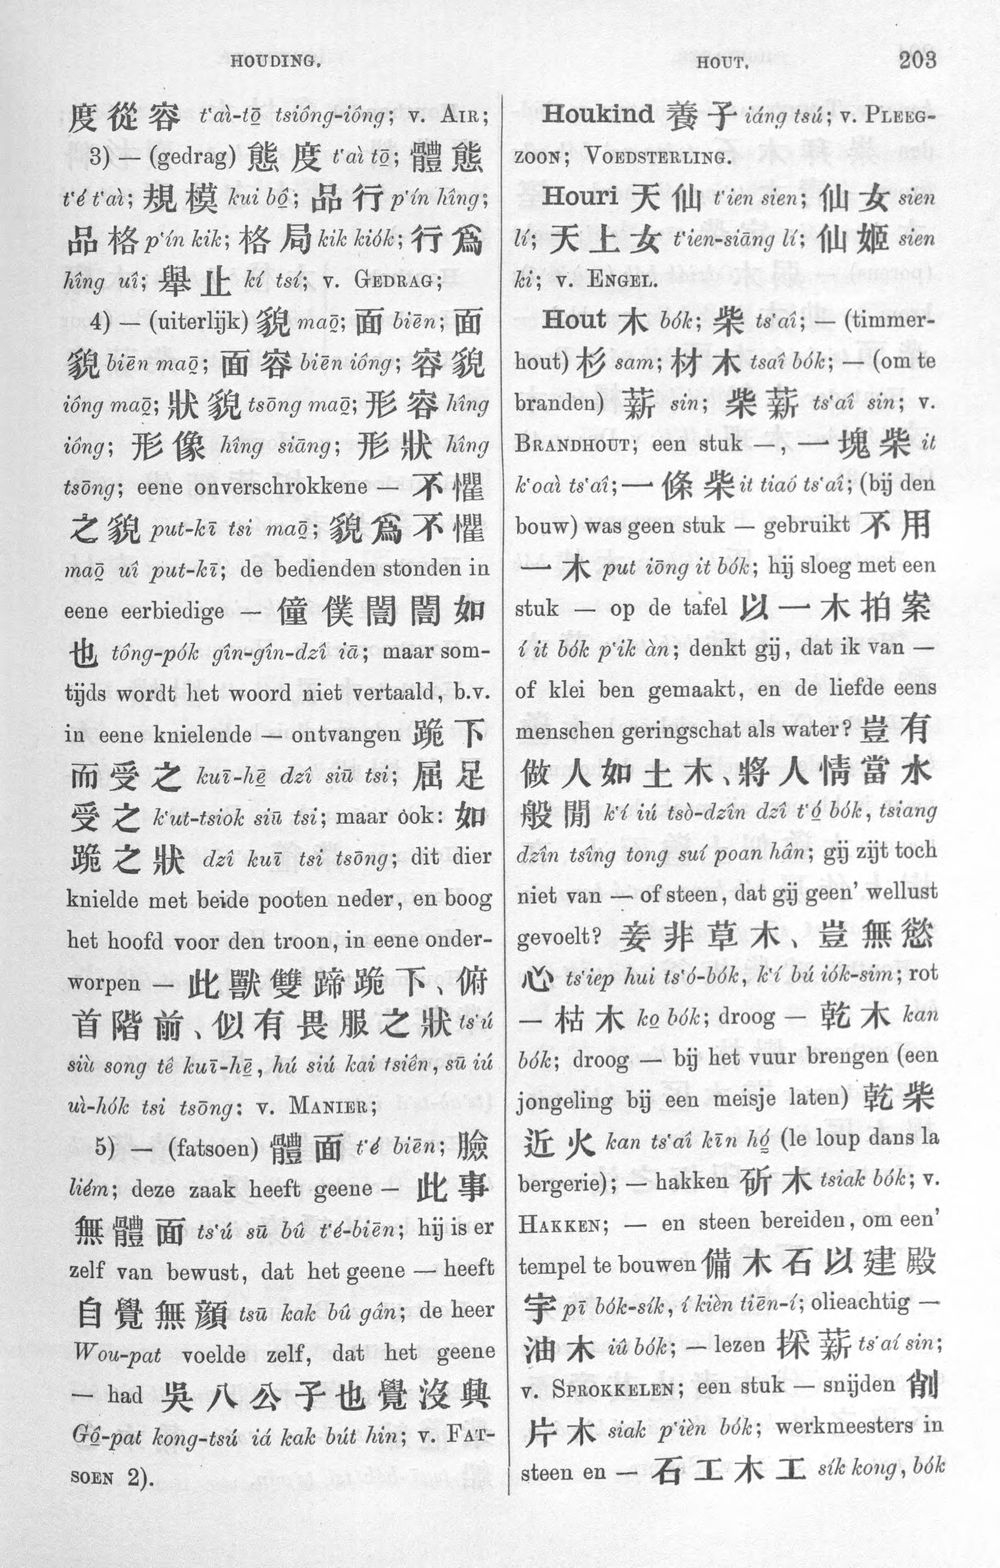 HOUDING.
度從容 t'aì-tō̤ tsiông-iông; v. AIR;
3) — (gedrag) 態度 t'aì tō̤; 體態
t'é t'aì; 規模 kui bô̤; 品行 p'ín hîng;
品格 p'ín kik; 格局 kik kiók; 行爲
hîng uî; 舉止 kí tsí; v. GEDRAG;
4) — (uiterlijk) 貌 maō̤; 面 biēn; 面
貌 biēn maō̤; 面容 biēn iông; 容貌
iông maō̤; 狀貌 tsōng maō̤; 形容 hîng
iông; 形像 hîng siāng; 形狀 hîng
tsōng; eene onverschrokkene — 不懼
之貌 put-kī tsi maō̤; 貌爲不懼
maō̤ uî put-kī; de bedienden stonden in
eene eerbiedige — 僮僕誾誾如
也 tông-pók gîn-gîn-dzî iā; maar som-
tijds wordt het woord niet vertaald, b.v.
in eene knielende — ontvangen 跪下
而受之 kuī-hē̤ dzî siū tsi; 屈足
受之 k'ut-tsiok siū tsi; maar ook: 如
跪之狀 dzî kuī tsi tsōng; dit dier
knielde met beide pooten neder, en boog
het hoofd voor den troon, in eene onder-
worpen — 此獸雙蹄跪下、俯
首階前、似有畏服之狀 ts'ú
siù song tê kuī-hē̤, hú siú kai tsiên, sū iú
uì-hók tsi tsōng: v. MANIER;
5) — (fatsoen) 體面 t'é biēn; 臉
liém; deze zaak heeft geene — 此事
無體面 ts'ú sū bû t'é-biēn; hij is er
zelf van bewust, dat het geene — heeft
自覺無顏 tsū kak bû gân; de heer
Wou-pat voelde zelf, dat het geene
— had 吳八公子也覺沒興
Gô̤-pat kong-tsú iá kak bút hìn; v. FAT-
SOEN 2).
HOUT.
203
Houkind 養子 iáng tsú; v. PLEEG-
ZOON; VOEDSTERLING.
Houri 天仙 t'ien sien; 仙女 sien
lí; 天上女 t'ien-siāng lí; 仙姬 sien
ki; v. ENGEL.
Hout 木 bók; 柴 ts'aî; — (timmer-
hout) 杉 sam; 材木 tsaî bók; — (om te
branden) 薪 sin; 柴薪 ts'aî sin; v.
BRANDHOUT; een stuk —, 一塊柴 it
k'oaì ts'aî; 一條柴 it tiaó ts'aî; (bij den
bouw) was geen stuk — gebruikt 不用
一木 put iōng it bók; hij sloeg met een
stuk — op de tafel 以一木拍案
í it bók p'ik àn; denkt gij, dat ik van —
of klei ben gemaakt, en de liefde eens
menschen geringschat als water? 豈有
做人如土木、將人情當水
般閒 k'í iú tsò-dzîn dzî t'ó̤ bók, tsiang
dzîn tsîng tong suí poan hân; gij zijt toch
niet van — of steen, dat gij geen' wellust
gevoelt? 妾非草木、豈無慾
心 ts'iep hui ts'ó-bók, k'í bú iók-sim; rot
— 枯木 ko̤ bók; droog — 乾木 kan
bók; droog — bij het vuur brengen (een
jongeling bij een meisje laten) 乾柴
近火 kan ts'aî kīn hó̤ (le loup dans la
bergerie); — hakken 斫木 tsiak bók; v.
HAKKEN; — en steen bereiden, om een'
tempel te bouwen 備木石以建殿
宇 pī bók-sík, í kièn tiēn-í; olieachtig —
油木 iû bók; — lezen 採薪 ts'aí sin;
v. SPROKKELEN; een stuk — snijden 削
片木 siak p'ièn bók; werkmeesters in
steen en — 石工木工 sík kong, bók